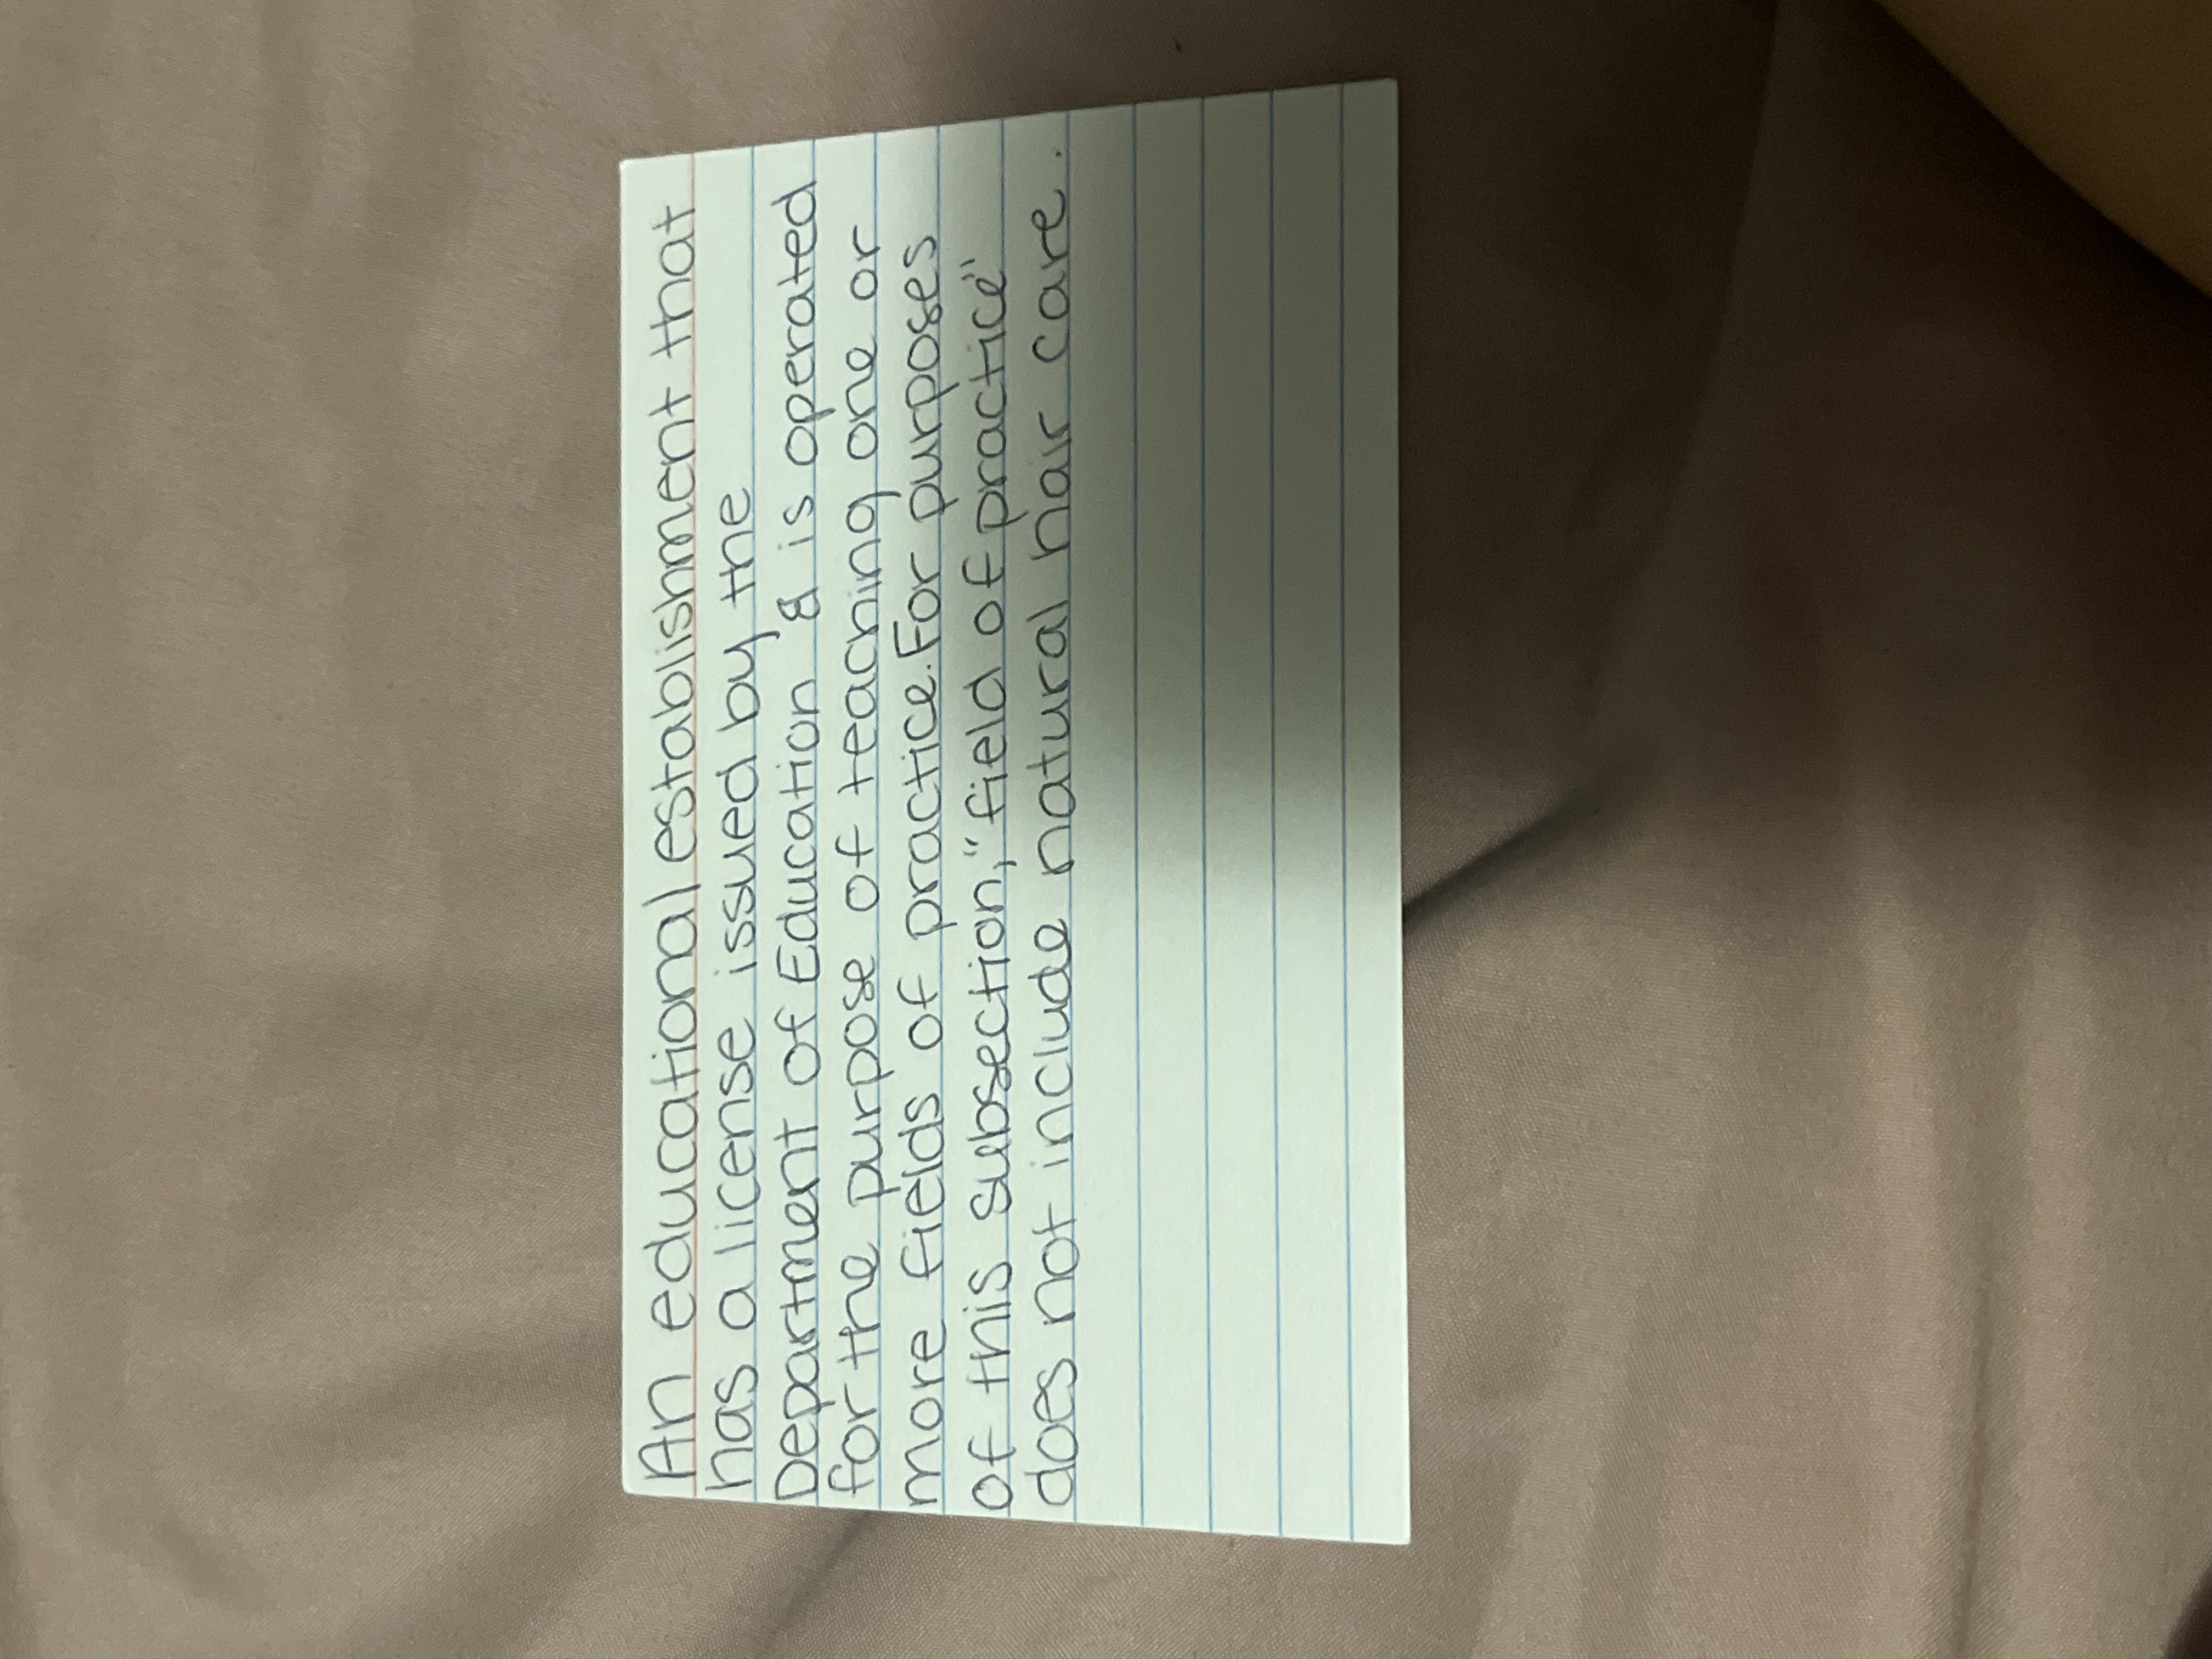 An educational establishment that
has a license issued by the
Department of Education & is operated
for the purpose of teaching one or
more fields of practice. For purposes
of this subsection, "field of practice"
does not include natural hair care.